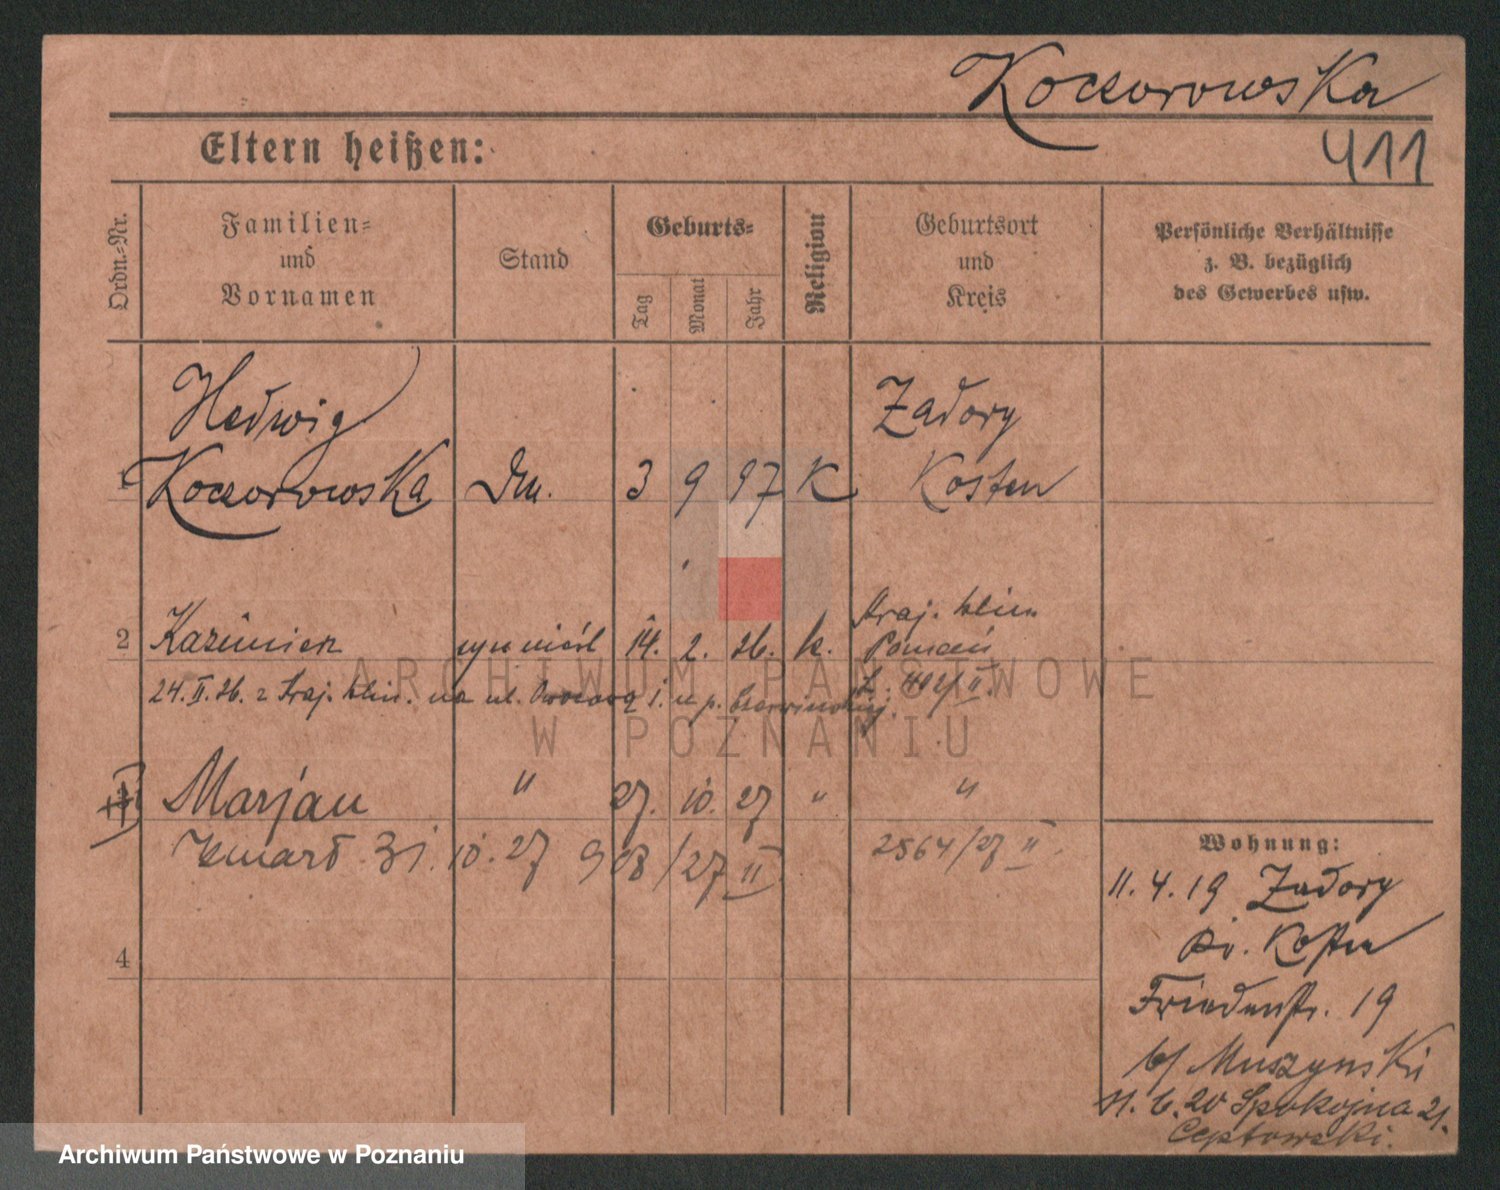 Koczorowska
411
Eltern heißen:
Ordn.-Nr.
Familien-
und
Vornamen
Stand
Geburts-
Tag
Monat
Jahr
Religion
Geburtsort
und
Kreis
Persönliche Verhältnisse
z. B. bezüglich
des Gewerbes usw.
Hedwig
Zadory
1 Koczorowska Dm. 3 9 97 K Kosten
Kraj. klin.
2 Kazimierz 14. 2. 26. k. Poznań
24. II. 26. z Kraj. klin. na ul. i. u p.
Marjan " 27. 10. 27 " "
zmarł 31. 10. 27 908/27 II 2564/27 II.
4
Wohnung:
11. 4. 19 Zadory
Kr. Kosten
Friedenstr. 19
b/ Muszynski
11. 6. 20 Spokojna 21.
Ceptowski.
ARCHIWUM PAŃSTWOWE
W POZNANIU
Archiwum Państwowe w Poznaniu